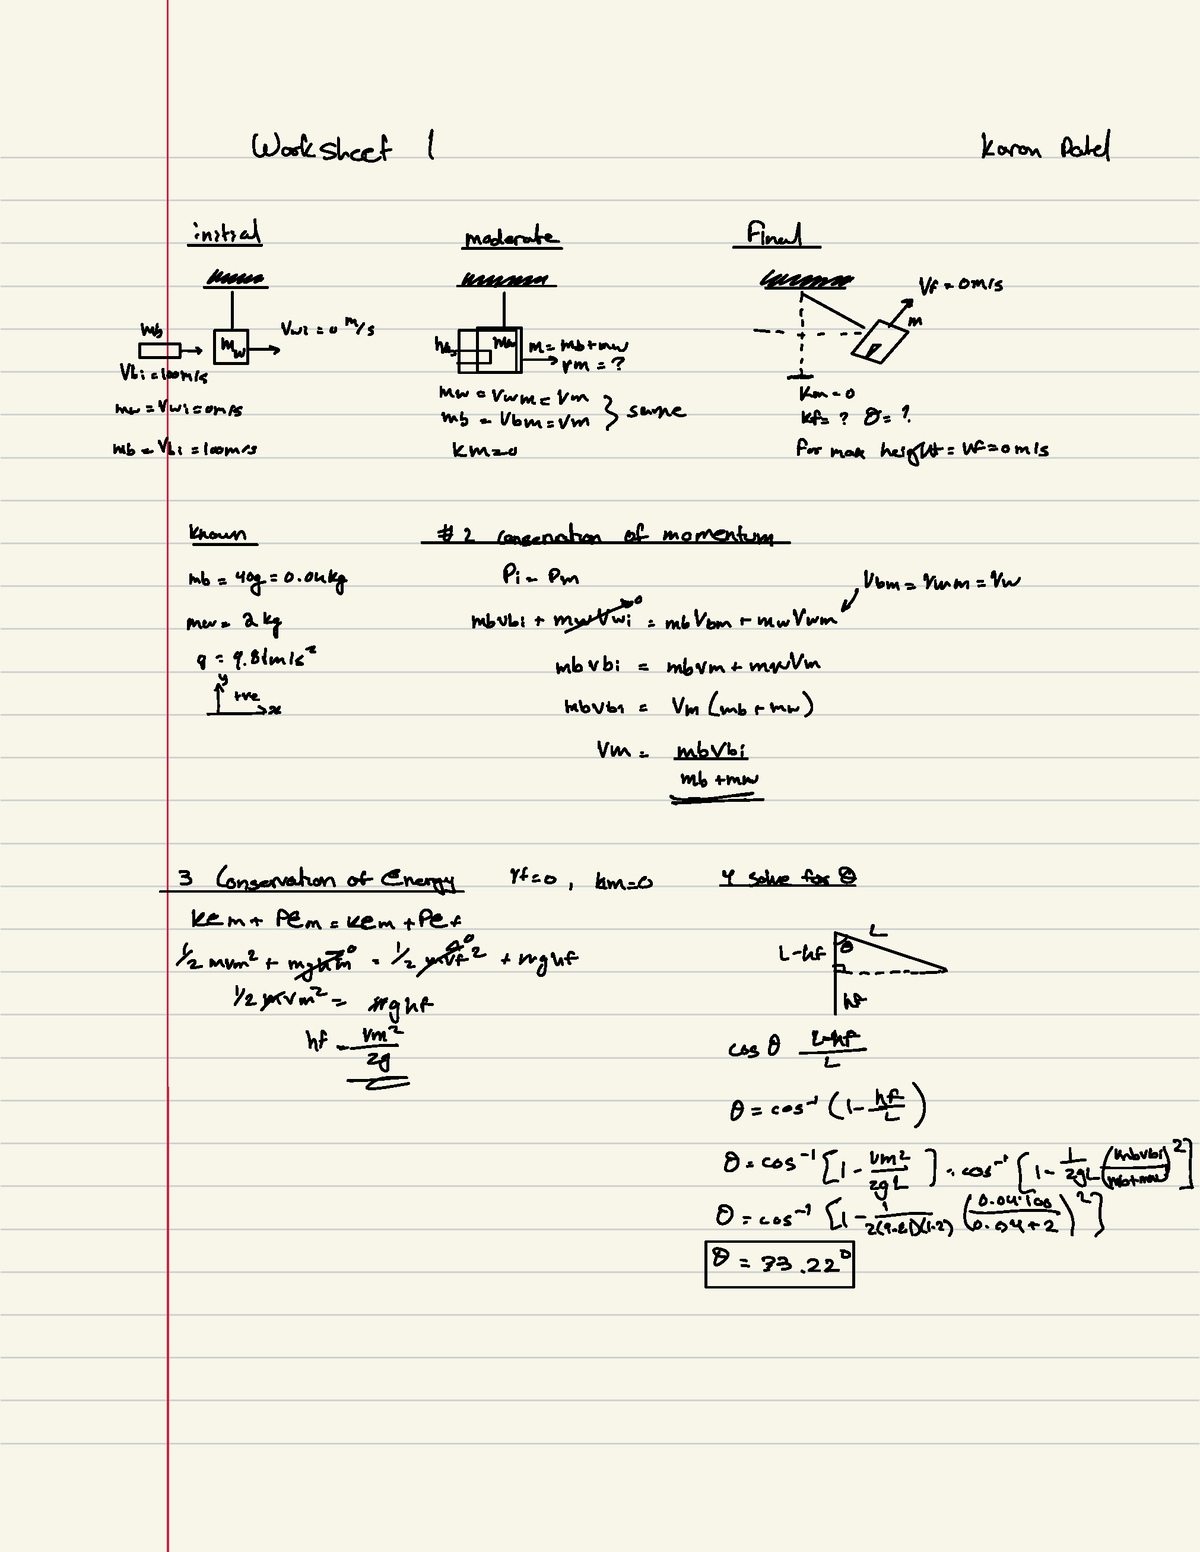 Worksheet 1
Karan Patel
initial
moderate
Final
Vf = 0m/s
mb
mw
Vwi = 0 m/s
Vbi = 100m/s
mw
m = mb+mw
vm = ?
m
mw = Vwi = 0m/s
mb = Vbi = 100m/s
mw = Vwm = Vm
mb = Vbm = Vm } same
km=0
Km = 0
kf = ? θ = ?
For max height = Vf = 0m/s
Known
mb = 40g = 0.04kg
mw = 2kg
g = 9.81m/s²
y
+ve
x
#2 conservation of momentum
Pi = Pm
Vbm = Vwm = Vw
mbvbi + mwVwi⁰ = mbVbm + mwVwm
mbvbi = mbvm + mwVm
mbvbi = Vm (mb + mw)
Vm = mbVbi
mb + mw
3 Conservation of Energy
Vf=0, hm=0
KEm + PEm = KEm + PEf
1/2 mvm² + mghm⁰ = 1/2 mvf² ⁰ + mghf
1/2 mvm² = mghf
hf = Vm²
2g
4 solve for θ
L
L-hf
θ
hf
cos θ L-hf
L
θ = cos⁻¹ (1 - hf/L)
θ = cos⁻¹ [1 - vm²/2gL] = cos⁻¹ [1 - 1/2gL (mbvbi/mb+mw)²]
θ = cos⁻¹ [1 - 1/2(9.81)(1.2) (0.04·100/0.04+2)²]
θ = 33.22°